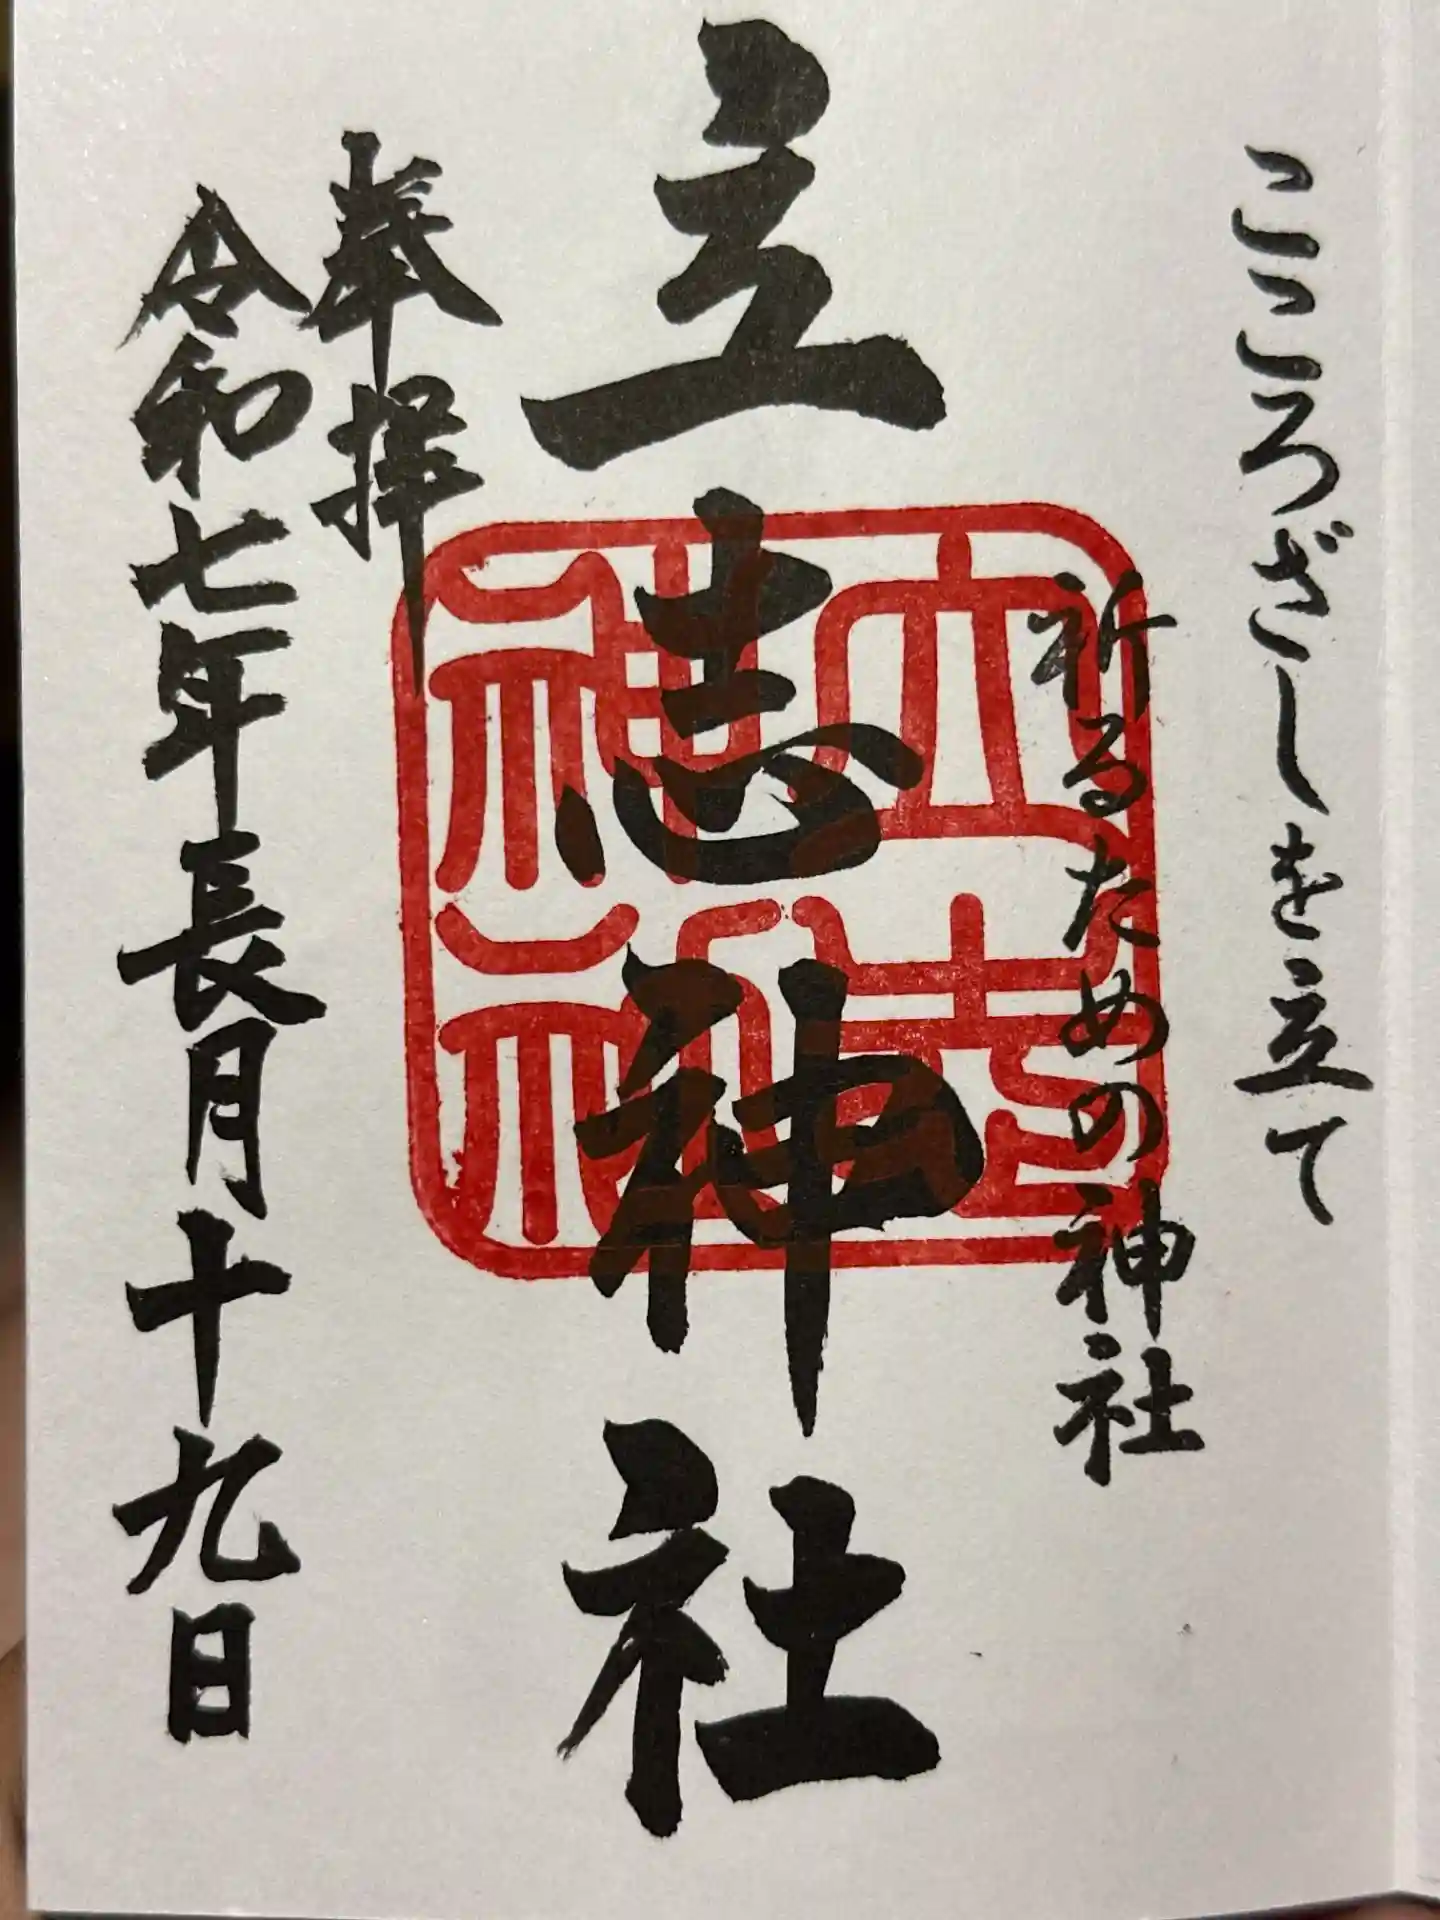 こころざしを立て
祈るための神社
立志神社
奉拝
令和七年長月十九日
立志神社